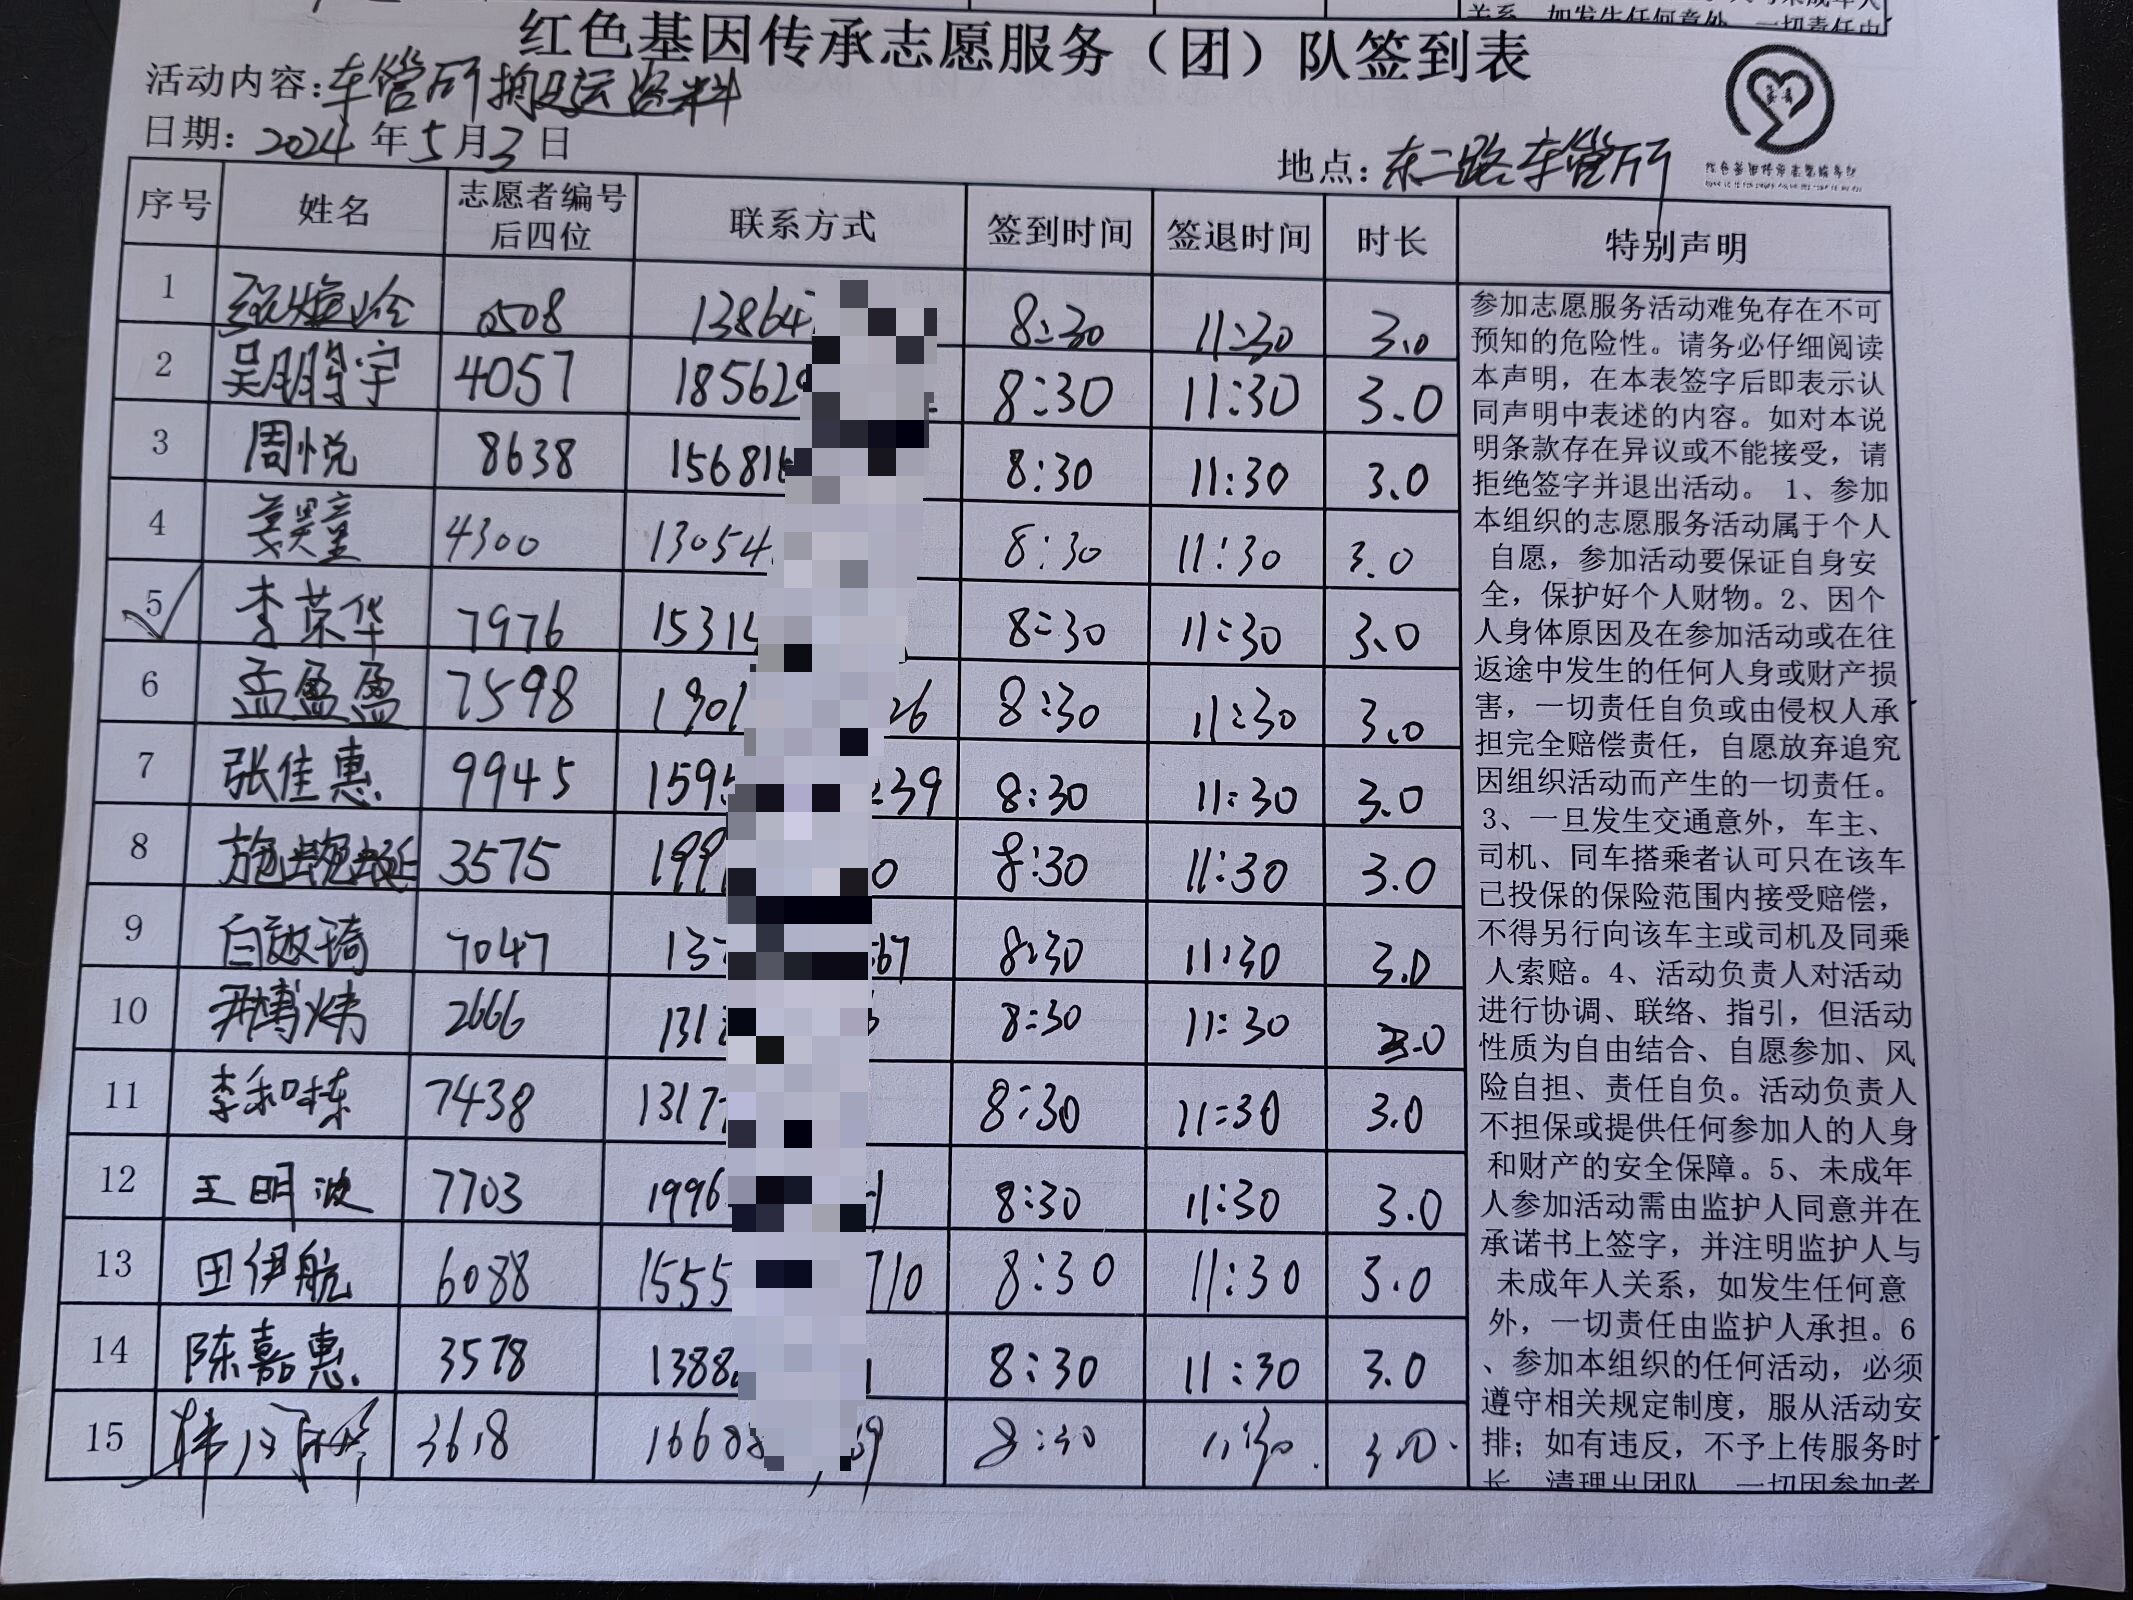 关系，如发生任何意外，一切责任由
红色基因传承志愿服务（团）队签到表
活动内容：车管所搬运资料
日期：2024年5月3日
地点：东二路车管所
序号 姓名 志愿者编号后四位 联系方式 签到时间 签退时间 时长 特别声明
1 0508 13864 8:30 11:30 3.0
2 吴鹏宇 4057 18562 8:30 11:30 3.0
3 周悦 8638 15681 8:30 11:30 3.0
4 4300 13054 8:30 11:30 3.0
5 李荣华 7976 1531 8:30 11:30 3.0
6 孟盈盈 7598 1901 26 8:30 11:30 3.0
7 张佳惠 9945 159 39 8:30 11:30 3.0
8 3575 199 0 8:30 11:30 3.0
9 白敏琦 7047 13 67 8:30 11:30 3.0
10 尹博炜 2666 131 8:30 11:30 3.0
11 李和栋 7438 1317 8:30 11:30 3.0
12 王明波 7703 1996 1 8:30 11:30 3.0
13 田伊航 6088 1555 710 8:30 11:30 3.0
14 陈嘉惠 3578 1388 1 8:30 11:30 3.0
15 3618 16688 9 8:30 11:30 3.0
参加志愿服务活动难免存在不可
预知的危险性。请务必仔细阅读
本声明，在本表签字后即表示认
同声明中表述的内容。如对本说
明条款存在异议或不能接受，请
拒绝签字并退出活动。 1、参加
本组织的志愿服务活动属于个人
自愿，参加活动要保证自身安
全，保护好个人财物。2、因个
人身体原因及在参加活动或在往
返途中发生的任何人身或财产损
害，一切责任自负或由侵权人承
担完全赔偿责任，自愿放弃追究
因组织活动而产生的一切责任。
3、一旦发生交通意外，车主、
司机、同车搭乘者认可只在该车
已投保的保险范围内接受赔偿，
不得另行向该车主或司机及同乘
人索赔。4、活动负责人对活动
进行协调、联络、指引，但活动
性质为自由结合、自愿参加、风
险自担、责任自负。活动负责人
不担保或提供任何参加人的人身
和财产的安全保障。5、未成年
人参加活动需由监护人同意并在
承诺书上签字，并注明监护人与
未成年人关系，如发生任何意
外，一切责任由监护人承担。6
、参加本组织的任何活动，必须
遵守相关规定制度，服从活动安
排；如有违反，不予上传服务时
长，清理出团队，一切因参加者